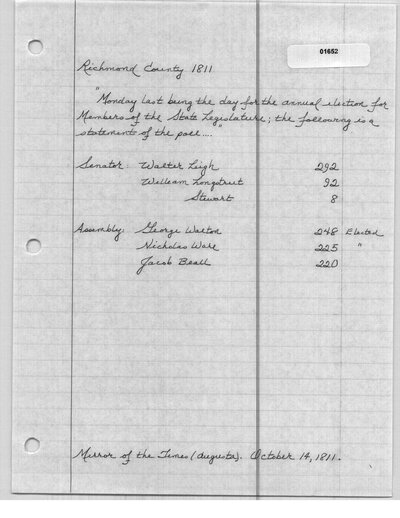 01652
Richmond County 1811
"Monday last being the day for the annual election for
Members of the State Legislature; the following is a
statement of the poll...."
Senator: Walter Leigh 292
William Longstreet 92
Stewart 8
Assembly: George Walton 248 Elected
Nicholas Ware 225 "
Jacob Beall 220
Mirror of the Times (Augusta). October 14, 1811.